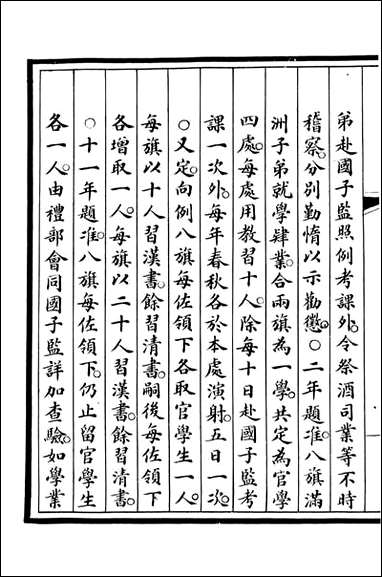 弟赴國子監照例考課外。令祭酒司業等不時
稽察。分別勤惰以示勸懲。○二年題准。八旗滿
洲子弟就學肄業。合兩旗為一學。共定為官學
四處。每處用教習十人。除每十日赴國子監考
課一次外。每年春秋各於本處演射。五日一次。
○又定。向例八旗每佐領下各取官學生一人。
每旗以十人習漢書。餘習清書。嗣後每佐領下
各增取一人。每旗以二十人習漢書。餘習清書。
○十一年題准。八旗每佐領下。仍止留官學生
各一人。由禮部會同國子監詳加查驗。如學業